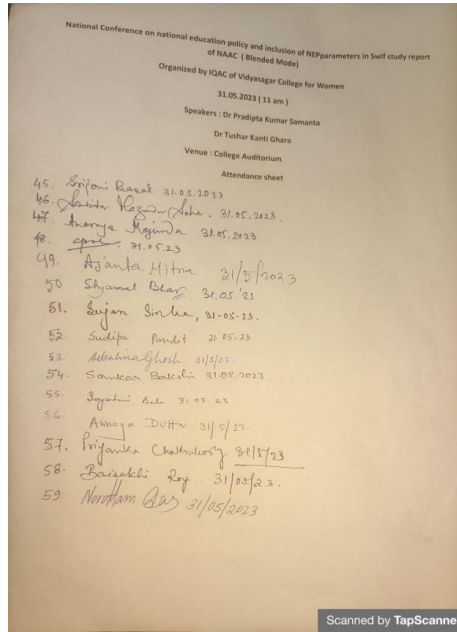 National Conference on national education policy and inclusion of NEPparameters in Swif study report
of NAAC ( Blended Mode)
Organized by IQAC of Vidyasagar College for Women
31.05.2023 ( 11 am )
Speakers : Dr Pradipta Kumar Samanta
Dr Tushar Kanti Ghara
Venue : College Auditorium
Attendance sheet
45. Srijoni Basak 31.05.2023
46. 31.05.2023.
47. Majumda 31.05.2023.
48. 31.05.23
49. Ajanta Mitra 31/5/2023
50 Shyamal Bhar 31.05'23
51. Sujan Sinha, 31-05-23.
52. Sudipa Pandit 31-05-23
53. Sebabrina Ghosh 31/5/23.
54. Sanskar Bakshi 31.05.2023.
55. Bala 31.05.23
56. Dutta 31/5/23.
57. Priyanka 31/5/23
58. Baisakhi Roy 31/05/23.
59 Norottam Das 31/05/2023
Scanned by TapScanne